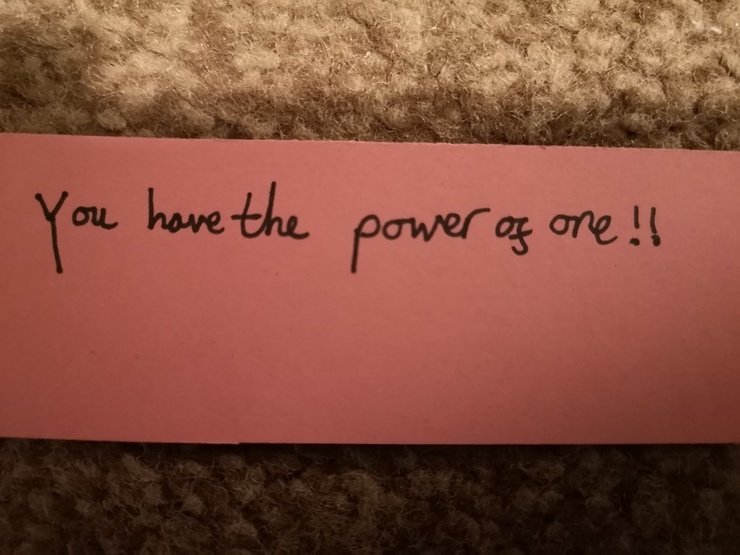 You have the power of one!!